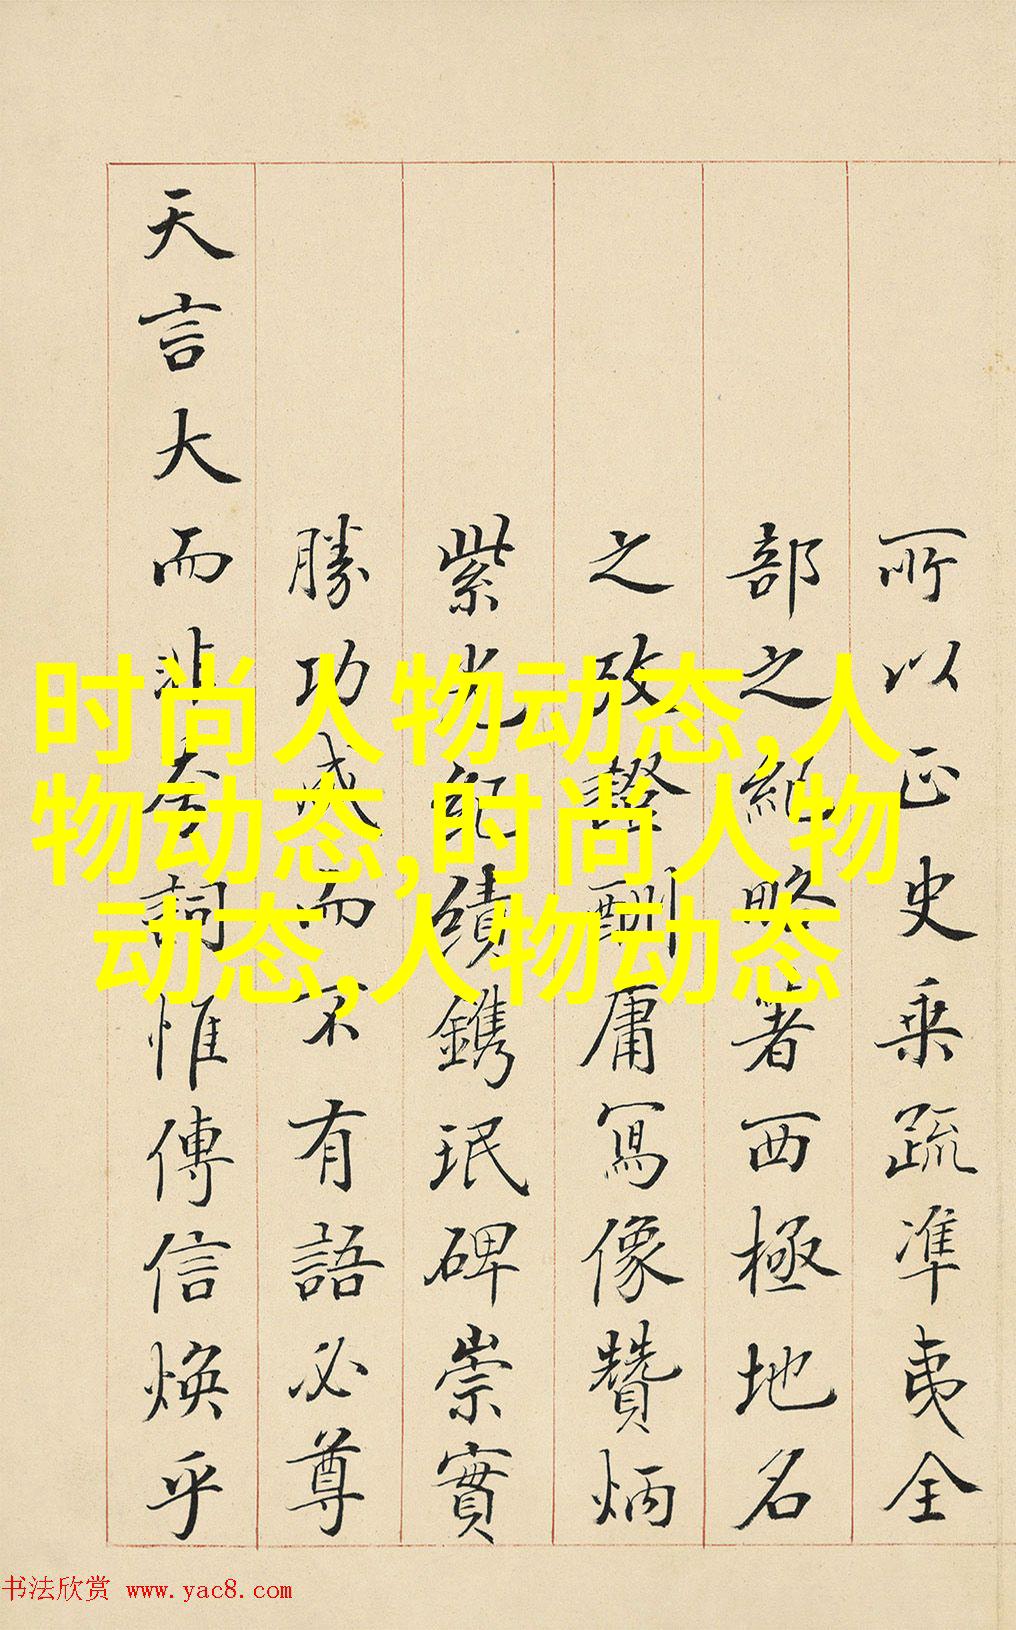 所以正史乘疏準夷全
部之紀略著西極地名
之攷酬庸寫像贊炳
紫光紀績鐫珉碑崇實
勝功成而不有語必尊
天言大而非夸詞惟傳信煥乎
时尚人物动态,人
物动态,时尚人物
动态,人物动态
书法欣赏 www.yac8.com